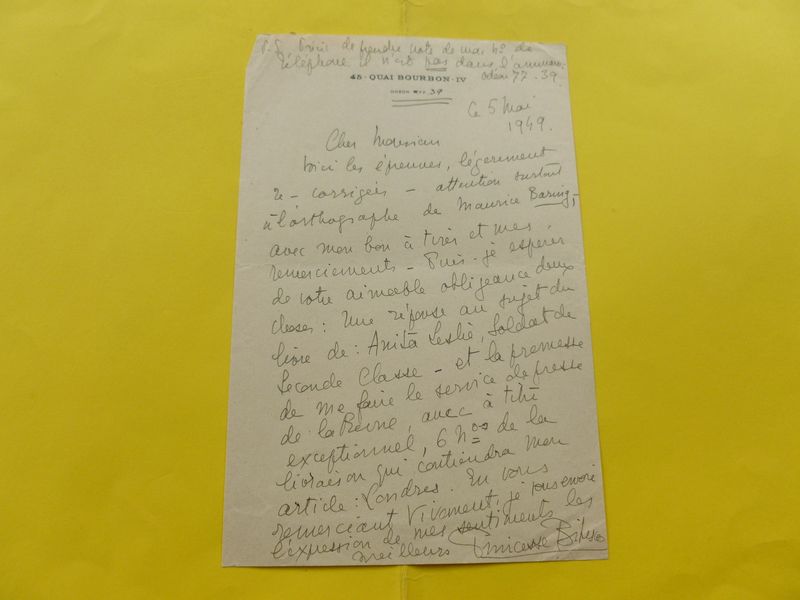 P.S. Prière de prendre note de mon no de
téléphone il n'est pas dans l'annuaire.
45 · QUAI BOURBON · IV Odéon 77-39.
ODÉON 39
Ce 5 Mai
1949.
Cher Monsieur
Voici les épreuves, légèrement
re-corrigées - attention surtout
à l'orthographe de Maurice Baring,-
avec mon bon à tirer et mes
remerciements - Puis-je espérer
de votre aimable obligeance deux
choses: Une réponse au sujet du
livre de: Anita Leslie, Soldat de
Seconde Classe - et la promesse
de me faire le service de presse
de la Revue, avec à titre
exceptionnel, 6 nos de la
livraison qui contiendra mon
article: Londres. En vous
remerciant vivement, je vous envoie
l'expression de mes sentiments les
meilleurs Princesse Bibesco